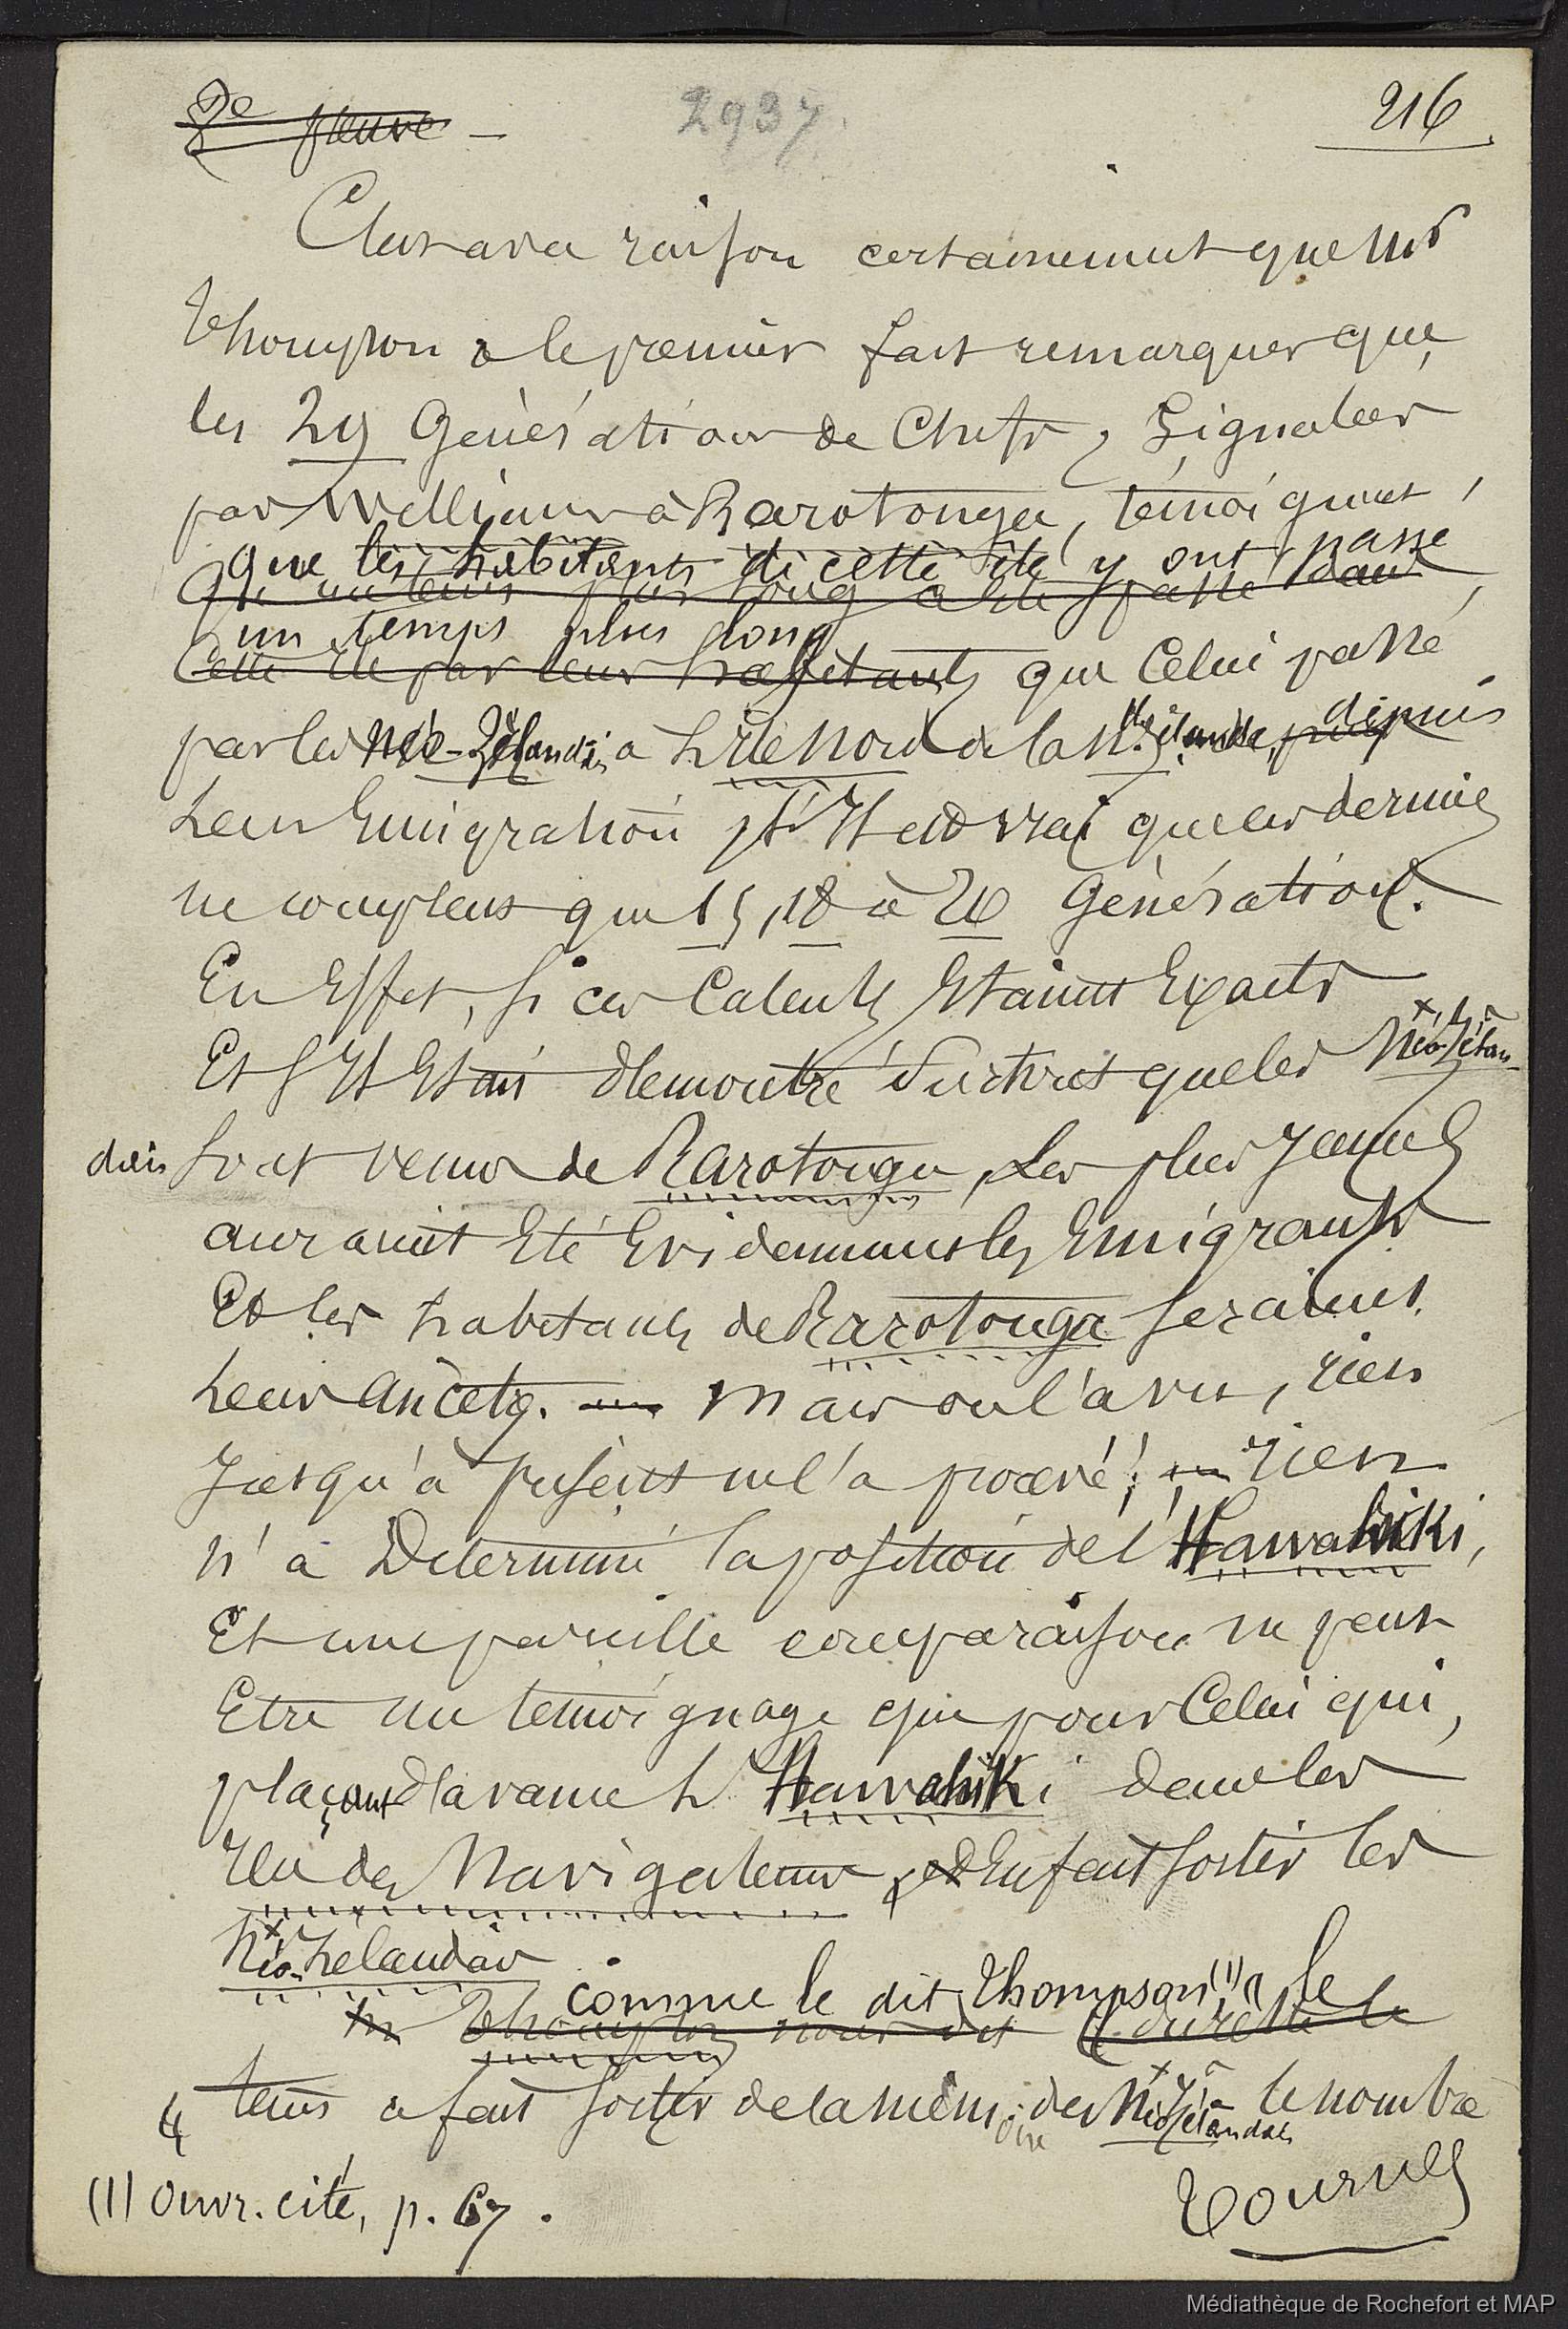 2e preuve —
2937.
216
C'est avec raison certainement que Mr
Thompson a le premier fait remarquer que
les 29 Générations de Chefs, Signalées
par Williams à Rarotonga, témoignent,
que les habitants de cette île y ont passé
qu'un tems plus long a été passé dans
un temps plus long
Cette ile par leurs habitants que Celui passé
par les Néo-Zélandais a L'Ile Nord de la Nlle Zélande, depuis
Leur Emigration, s'Il est vrai que ces derniers
ne comptent que 15, 18 à 20 Générations.
En Effet, si ces Calculs Etaient Exacts
Et s'Il Etait démontré surtout que les Néo-Zélan-
dais sont venus de Rarotonga, Les plus Jeunes
auraient Eté Evidemment les Emigrants
Et les habitants de Rarotonga seraient
Leurs Ancêtres. — Mais on l'a vu, rien
Jusqu'à présent ne l'a prouvé; — rien
n'a Déterminé la position de l'Hawahiki,
Et une pareille comparaison ne peut
Etre un témoignage que pour Celui qui,
plaçant d'avance L'Hawahiki dans les
Iles des Navigateurs, en fait sortir les
Néo-Zélandais.
comme le dit Thompson (1), le
Thompson nous dit
tems a fait sortir de la mémoire des Néo-Zélandais le nombre
(1) Ouvr. cité, p. 67.
Tournez
Médiathèque de Rochefort et MAP